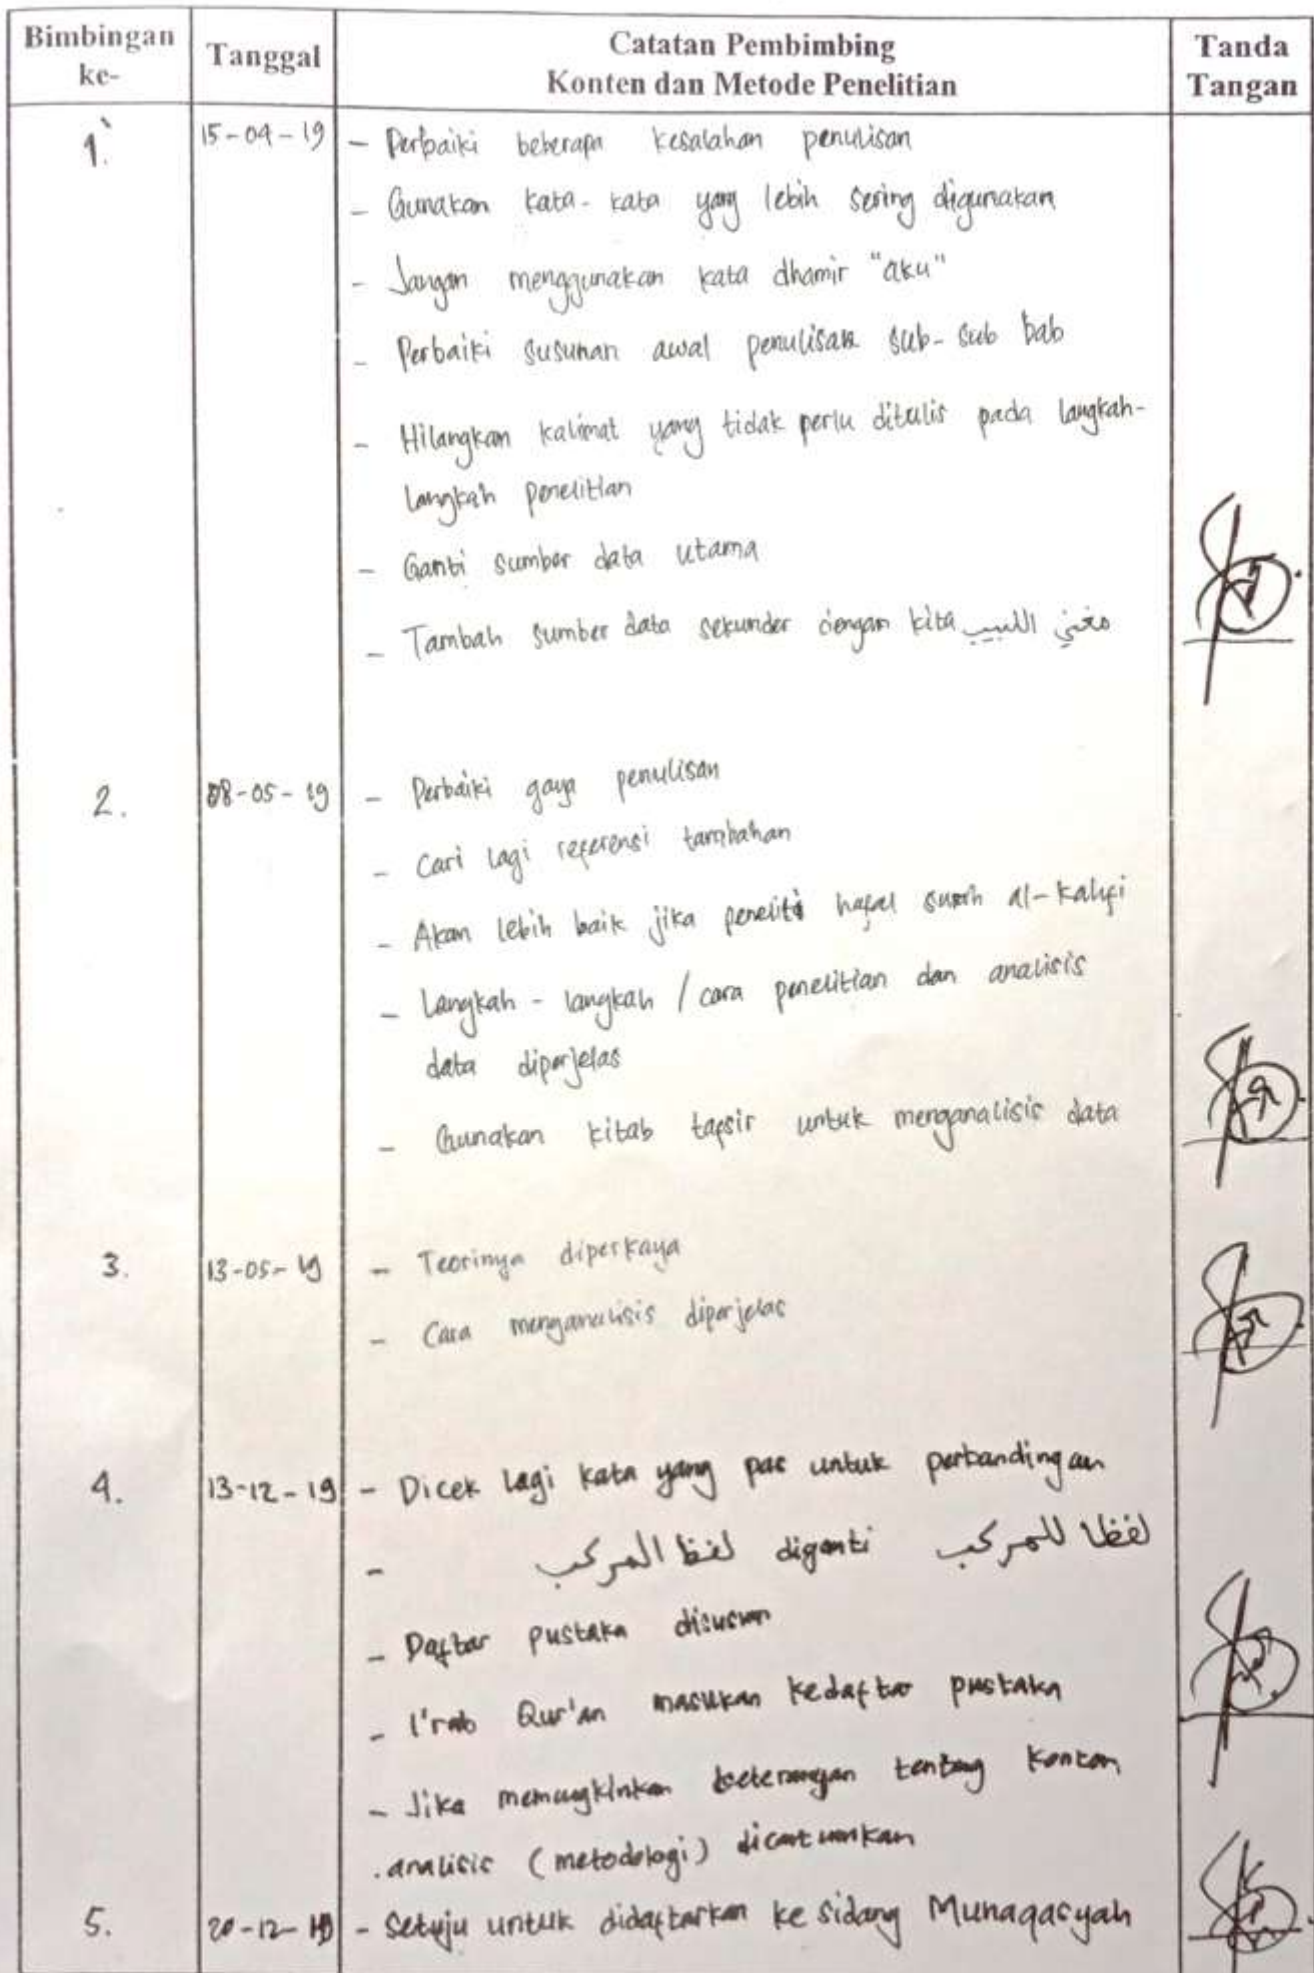 Bimbingan ke- Tanggal Catatan Pembimbing Konten dan Metode Penelitian Tanda Tangan
1. 15-04-19 - Perbaiki beberapa kesalahan penulisan
- Gunakan kata-kata yang lebih sering digunakan
- Jangan menggunakan kata dhamir "aku"
- Perbaiki susunan awal penulisan sub-sub bab
- Hilangkan kalimat yang tidak perlu ditulis pada langkah-
langkah penelitian
- Ganti sumber data utama
- Tambah sumber data sekunder dengan kita مغني اللبيب
2. 08-05-19 - Perbaiki gaya penulisan
- Cari lagi referensi tambahan
- Akan lebih baik jika peneliti hafal surah al-kahfi
- Langkah - langkah / cara penelitian dan analisis
data diperjelas
- Gunakan kitab tafsir untuk menganalisis data
3. 13-05-19 - Teorinya diperkaya
- Cara menganalisis diperjelas
4. 13-12-19 - Dicek lagi kata yang pas untuk perbandingan
- لفظ المركب diganti لفظا للمركب
- Daftar pustaka disusun
- I'rab Qur'an masukan kedaftar pustaka
- Jika memungkinkan keterangan tentang konten
analisis (metodologi) dicantumkan
5. 20-12-19 - Setuju untuk didaftarkan ke sidang Munaqasyah